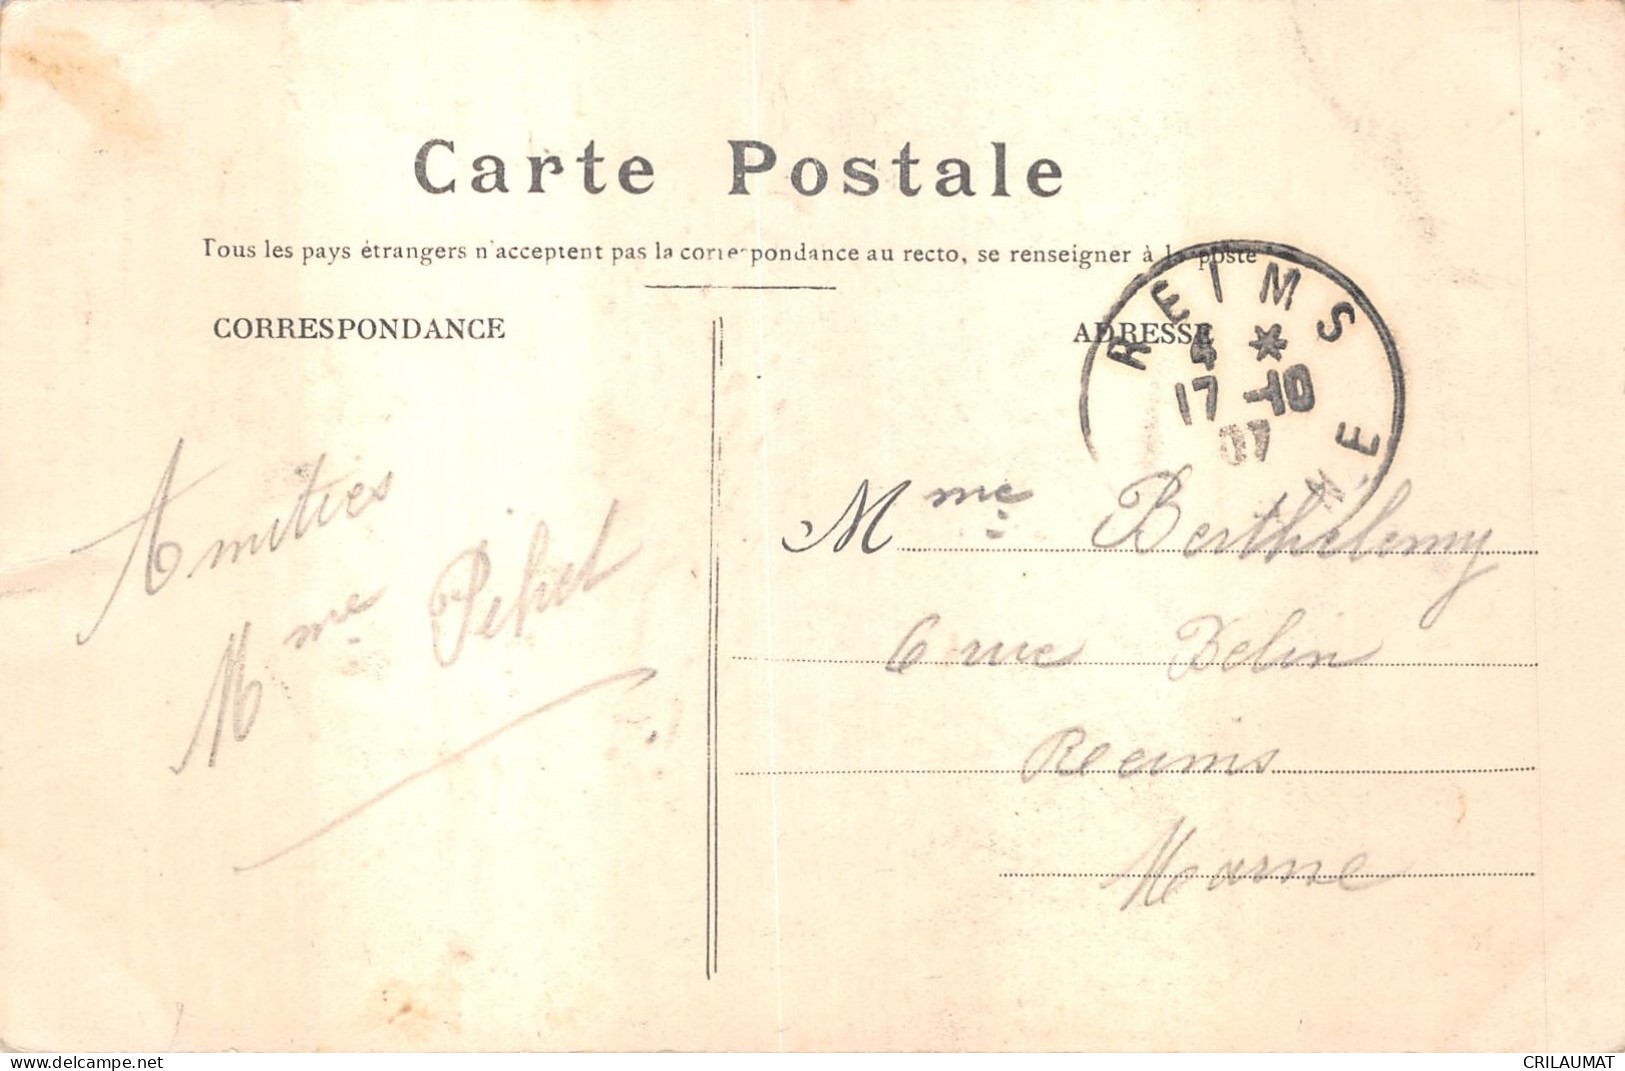 Carte Postale
Tous les pays étrangers n'acceptent pas la correspondance au recto, se renseigner à la poste
CORRESPONDANCE
ADRESSE
REIMS
4 *
17 -10
07
Amitiés
Mme
Mme Berthélemy
6 rue Belin
Reeims
Marne
www.delcampe.net
CRILAUMAT